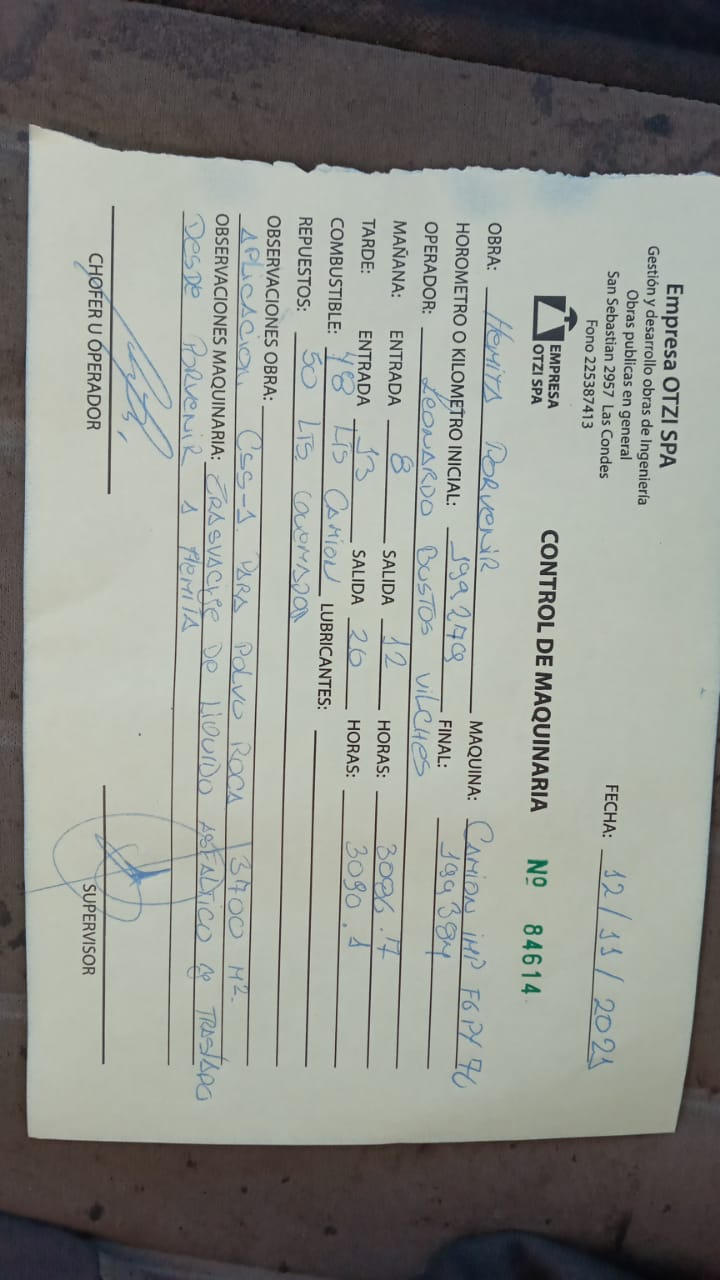 Empresa OTZI SPA
Gestión y desarrollo obras de Ingeniería
Obras publicas en general
San Sebastian 2957 Las Condes
Fono 225387413
EMPRESA
OTZI SPA
FECHA: 12/11/2021
CONTROL DE MAQUINARIA Nº 84614
OBRA: Hemita Porvenir MAQUINA: Camion imp FGPY 76
HOROMETRO O KILOMETRO INICIAL: 199279 FINAL: 199384
OPERADOR: Leonardo Bustos Vilches
MAÑANA: ENTRADA 8 SALIDA 12 HORAS: 3086.7
TARDE: ENTRADA 13 SALIDA 20 HORAS: 3090.1
COMBUSTIBLE: 48 LTS Camion LUBRICANTES:
REPUESTOS: 50 LTS. Quemador
OBSERVACIONES OBRA:
Aplicacion CSS-1 para polvo roca 3700 M².
OBSERVACIONES MAQUINARIA: Trasvacije de liquido asfaltico y traslado
desde Porvenir a Hemita
CHOFER U OPERADOR
SUPERVISOR